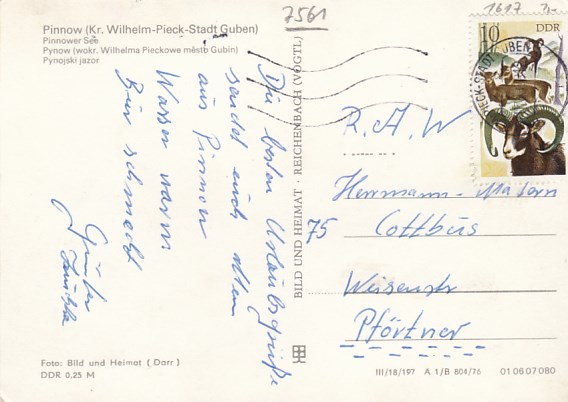 7561
1617 7,-
Pinnow (Kr. Wilhelm-Pieck-Stadt Guben)
Pinnower See
Pynow (wokr. Wilhelma Pieckowe město Gubin)
Pynojski jazor
10 DDR
PIECK-STADT GUBEN
Die besten Urlaubsgrüße
sendet euch allen
aus Pinnow
Wasser warm
Bier schmeckt
Günter
R. A. W
Herrmann-Matern
75 Cottbus
Weisenstr
Pförtner
BILD UND HEIMAT · REICHENBACH (VOGTL)
Foto: Bild und Heimat (Darr)
DDR 0,25 M
III/18/197 A 1/B 804/76 01 06 07 080